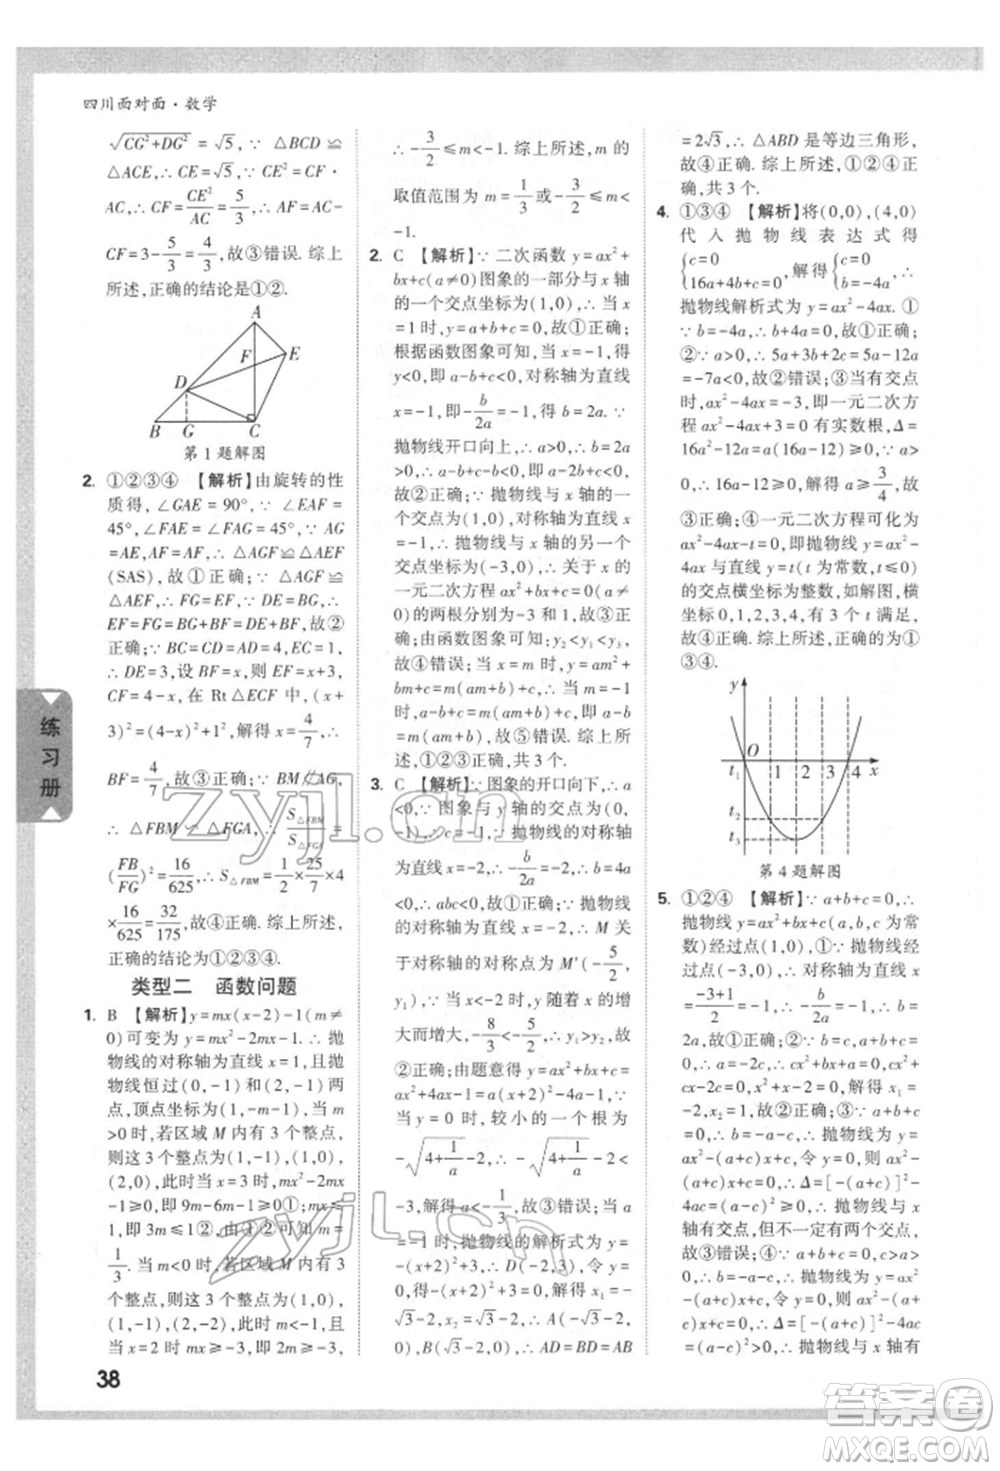 四川面对面·数学
√(CG²+DG²)=√5,∵△BCD≌
△ACE,∴CE=√5,∵CE²=CF·
AC,∴CF=CE²/AC=5/3,∴AF=AC-
CF=3-5/3=4/3,故③错误.综上
所述,正确的结论是①②.
A
F
E
D
B G C
第1题解图
2. ①②③④ 【解析】由旋转的性
质得,∠GAE=90°,∵∠EAF=
45°,∠FAE=∠FAG=45°,∵AG
=AE,AF=AF,∴△AGF≌△AEF
(SAS),故①正确;∵△AGF≌
△AEF,∴EF=GF,∵DE=BG,∴
EF=FG=BG+BF=DE+BF,故②
正确;∵BC=CD=AD=4,EC=1,
∴DE=3,设BF=x,则EF=x+3,
CF=4-x,在Rt△ECF中,(x+
3)²=(4-x)²+1²,解得x=4/7,∴
BF=4/7,故③正确;∵BM∥AG,
∴△FBM∽△FGA,∴S△FBM/S△FGA=
(FB/FG)²=16/625,∴S△FBM=1/2×25/7×4
×16/625=32/175,故④正确.综上所述,正
确的结论为①②③④.
类型二 函数问题
1. B 【解析】y=mx(x-2)-1(m≠
0)可变为y=mx²-2mx-1.∴抛
物线的对称轴为直线x=1,且抛
物线恒过(0,-1),(2,-1)两
点,顶点坐标为(1,-m-1).当m
>0时,若区域M内有3个整点,
则这3个整点为(1,-1),(1,0),
(2,0),∴当x=3时,0≤mx²-2mx
-1<2,即9m-6m-1≥0且9m-
6m-1<2,∴1/3≤m<1,当m=
1/3时,符合题意;当m<0时,若区域M内有3
个整点,则这3个整点为(1,0),
(1,-1),(2,-2),∴当x=1时,
1≤-m-1<2,∴-3<m≤-2;当
x=2时,-2<2m-1≤-1,∴
∴-3/2≤m<-1.综上所述,m的
取值范围为m=1/3或-3/2≤m<
-1.
2. C 【解析】∵二次函数y=ax²+
bx+c(a≠0)图象的一部分与x轴
的一个交点坐标为(1,0),∴当x
=1时,y=a+b+c=0,故①正确;
根据函数图象可知,当x=-1时,
y<0,即a-b+c<0,对称轴为直线
x=-1,即-b/2a=-1,∴b=2a.∵
抛物线开口向上,∴a>0,∴b=2a
>0,∴a-2b+c=a-b+c-b<0,故
②正确;∵抛物线与x轴的一个
交点为(1,0),对称轴为直线x=
-1,∴抛物线与x轴的另一个
交点为(-3,0),∴关于x的
一元二次方程ax²+bx+c=0(a≠
0)的两根分别为-3和1,故③正
确;由函数图象可知:y₂<y₁<y₃,故
④错误;∵当x=m时,y=am²+
bm+c=m(am+b)+c≥a-b+c,
∴a-b≤m(am+b)(m为任意实
数),故⑤错误.综上所述,正确的
结论有①②③,共3个.
3. C 【解析】∵图象的开口向下,∴a
<0,∵图象与y轴交点为(0,
-1),∴c=-1<0,∵抛物线对称轴
为直线x=-2,∴-b/2a=-2,∴b=4a
<0,∴abc<0,故①正确;∵抛物线
的对称轴为直线x=-2,∴点M关
于对称轴的对称点为M′(-5/2,
y₁),当x<-2时,y随着x的增
大而增大,∵-8/3<-5/2,∴y₁>y₂,故
②正确;由题意得y=ax²+bx+c=ax²
+4ax-1=a(x+2)²-4a-1,令y=
0时,较小的一个根为
-√(4+1/a)-2,∴-√(4+1/a)-2<
-3,解得a<-1/3,故③错误;当a
=-1时,抛物线的解析式为y=
-(x+2)²+3,∴D(-2,3),令y=0,
得-(x+2)²+3=0,解得x₁=
-√3-2,x₂=√3-2,∴A(-√3-2,
0),B(√3-2,0),∴AD=BD=AB
=2√3,∴△ABD是等边三角形,
故④正确.综上所述,①②④正
确,共3个.
4. ①③④ 【解析】将(0,0),(4,0)
代入抛物线表达式得
{c=0 16a+4b+c=0,解得{c=0 b=-4a,∴
抛物线解析式为y=ax²-4ax.①
∵b=-4a,∴4a+b=0,故①正确;
②∵a>0,∴5a+3b+2c=5a-12a
=-7a<0,故②错误;③当有交点
时,ax²-4ax=-3,即一元二次方
程ax²-4ax+3=0有实数根,Δ=
16a²-12a=a(16a-12)≥0,∵a>
0,∴16a-12≥0,解得a≥3/4,故③
正确;④一元二次方程可化为
ax²-4ax=t,即抛物线y=ax²-4ax
与直线y=t(t为常数,t≤0)
的交点横坐标为整数,如解图,横
坐标0,1,2,3,4有3个t满足,
故④正确.综上所述,正确的为①
③④.
y
O
t₁ 1 2 3 4 x
t₂
t₃
第4题解图
5. ①②④ 【解析】∵a+b+c=0,∴
抛物线y=ax²+bx+c(a,b,c为常
数)经过点(1,0),①∵抛物线经
过点(-3,0),∴对称轴为直线x=
(-3+1)/2=-1,∴-b/2a=-1,∴b=
2a,故①正确;②∵b=c,a+b+c
=0,∴a=-2c,∴cx²+bx+a=cx²+
cx-2c=0,∵c≠0,解得x₁=
-2,x₂=1,故②正确;③∵a+b+c=
0,∴b=-(a+c),∴抛物线y=ax²
+bx+c=ax²-(a+c)x+c,令y=0,
得ax²-(a+c)x+c=0,∴Δ=[-(a+
c)]²-4ac=(a-c)²≥0,∴抛物线与x
轴有交点,但不一定有两个交点,
故③错误;④∵a+b+c=0,∴b=
-(a+c),∴抛物线y=ax²+bx+c=
ax²-(a+c)x+c,令y=0,得ax²-
(a+c)x+c=0,∴Δ=[-(a+c)]²-4ac
=(a-c)²≥0,∴抛物线与x轴有
练习册
38
zyjl.cn
zyjl.cn
答案圈
MXQE.COM